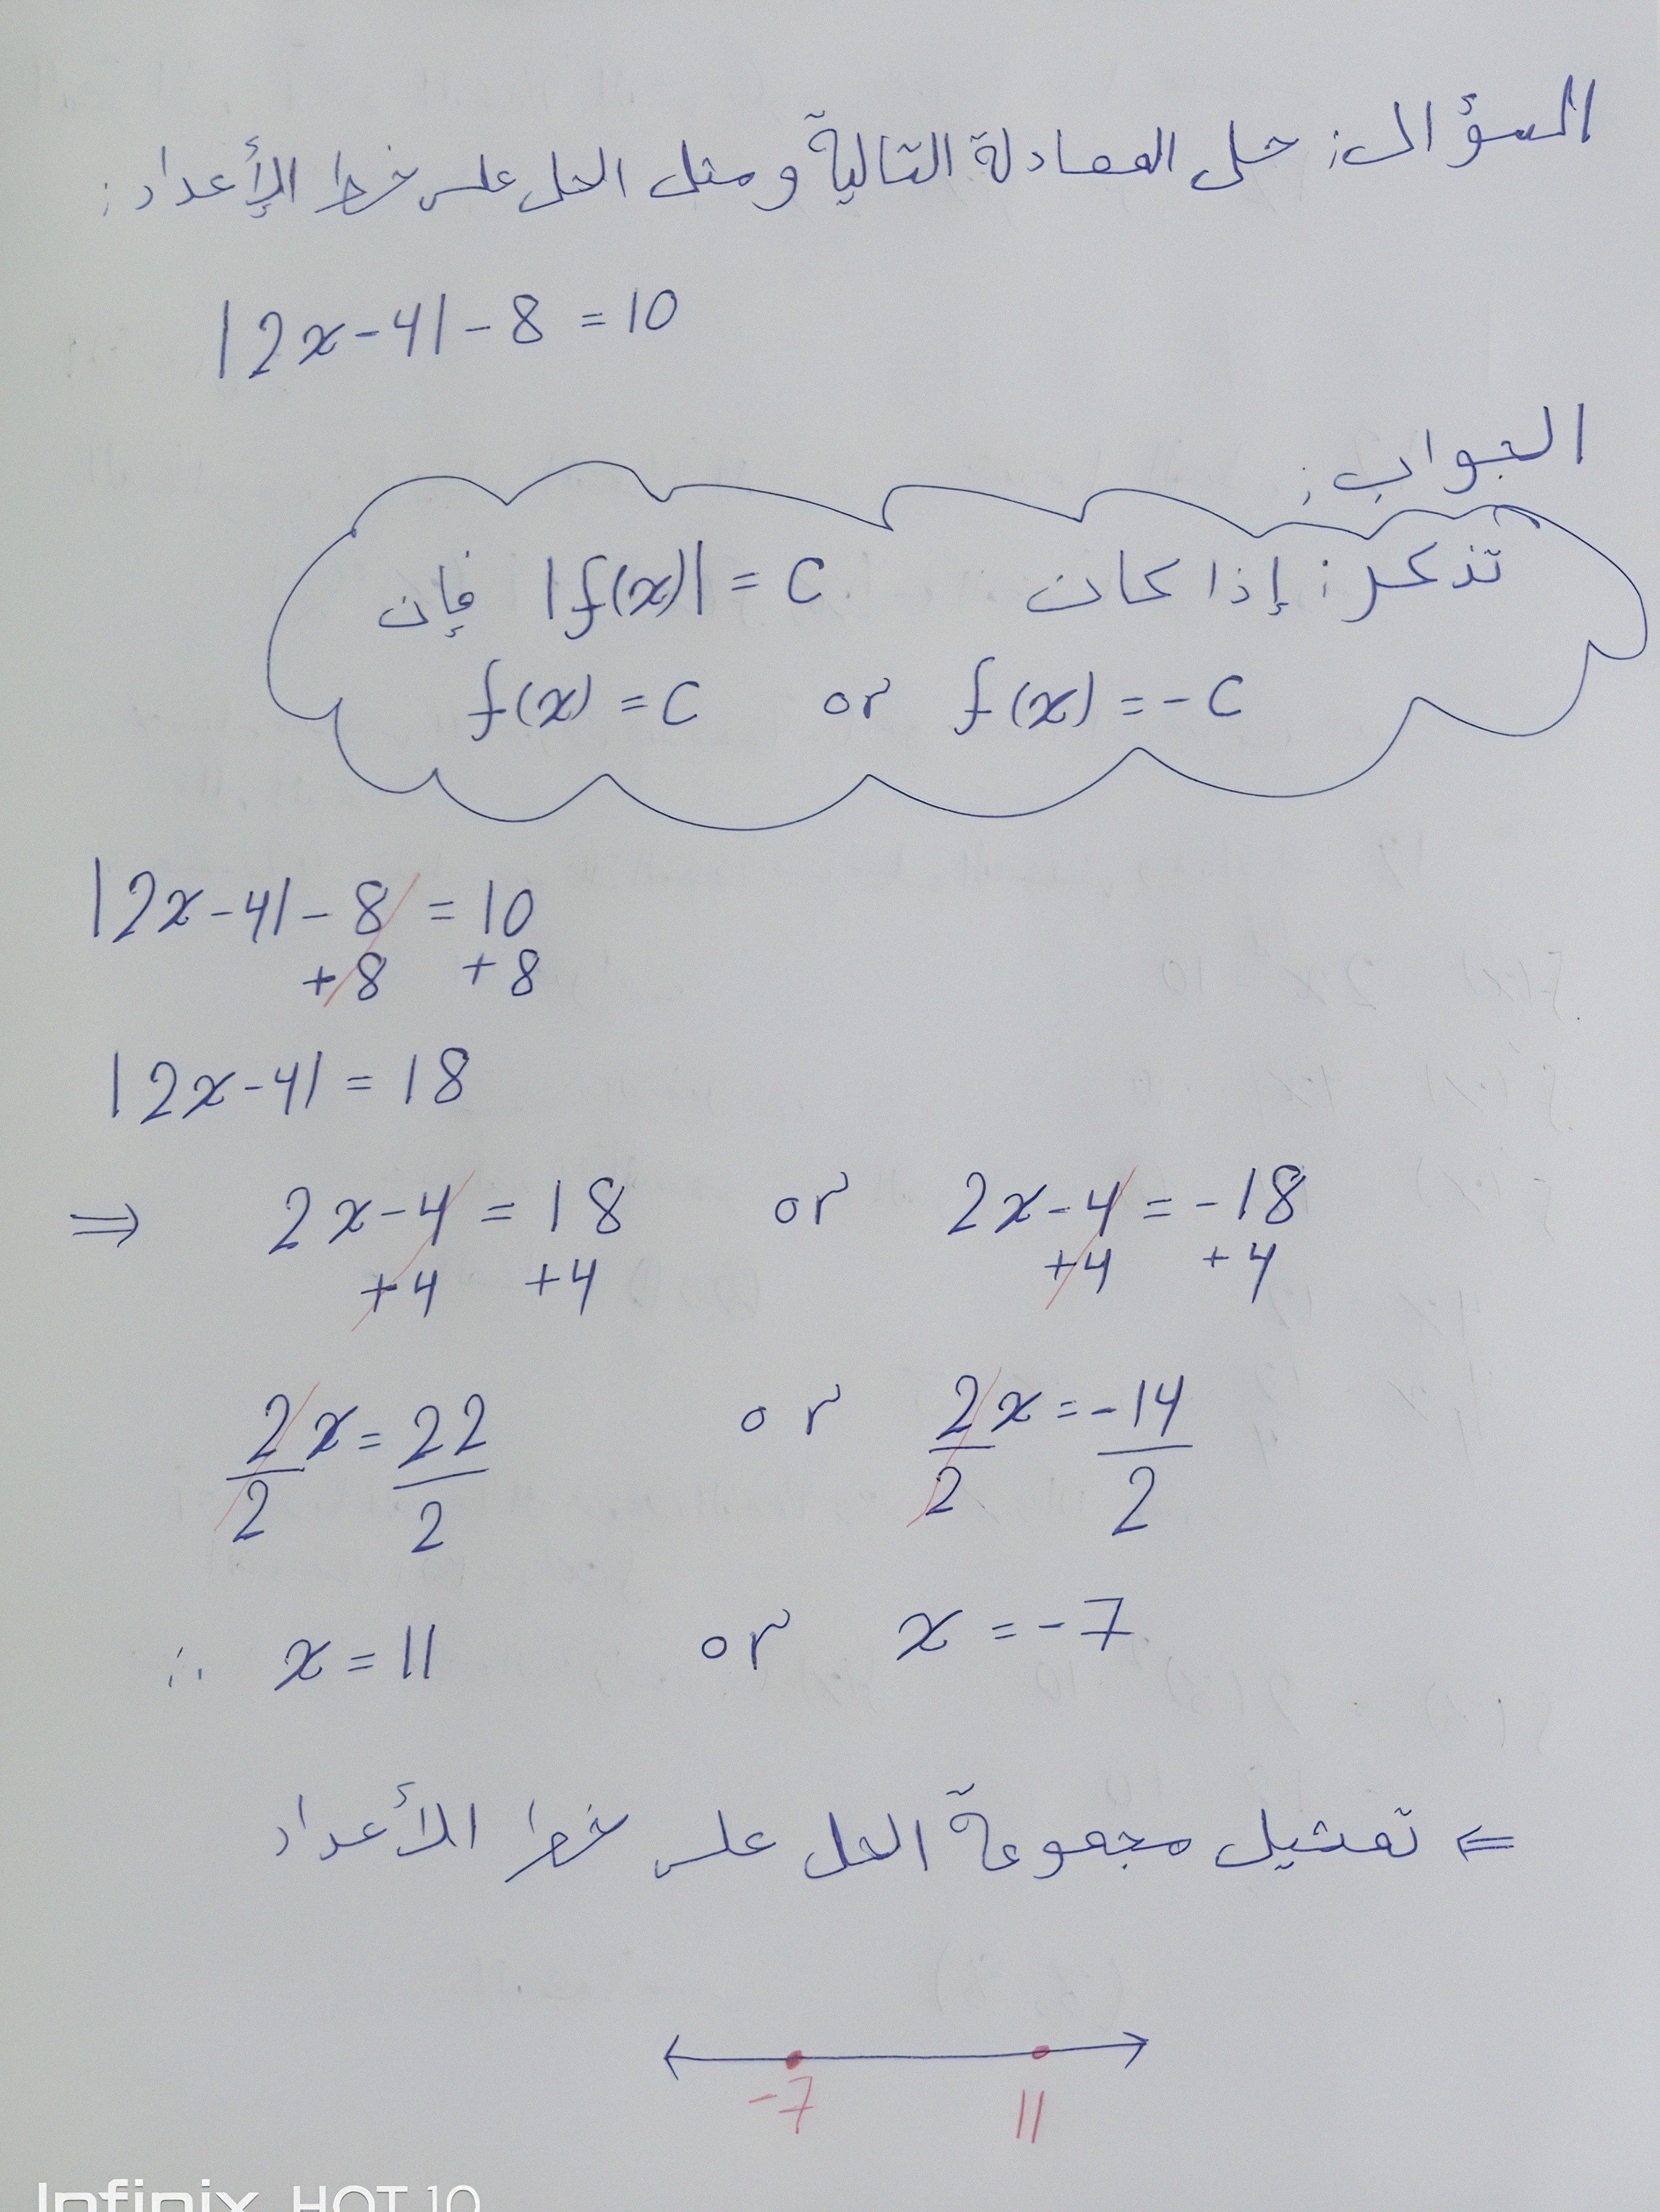 السؤال: حل المعادلة التالية ومثل الحل على خط الأعداد:
|2x-4|-8=10
الجواب:
تذكر: إذا كان |f(x)| = C فإن
f(x) = C or f(x) = -C
|2x-4|-8 = 10
+8 +8
|2x-4| = 18
⇒ 2x-4 = 18 or 2x-4 = -18
+4 +4 +4 +4
2x = 22 or 2x = -14
2 2 2 2
∴ x = 11 or x = -7
⇐ تمثيل مجموعة الحل على خط الأعداد
-7 11
Infinix HOT 10